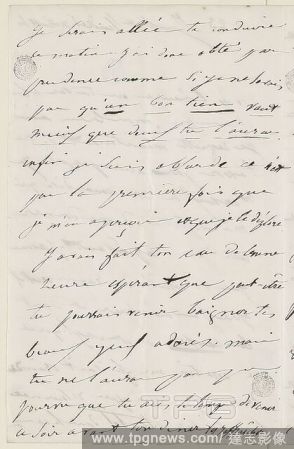 je serais allée te conduire
ce matin j'ai donc opté par
prudence comme si je ne savais
pas qu'un bon tien vaut
mieux que deux tu l'auras
enfin je suis absurde ce n'est
pas la première fois que
je m'en aperçois et que je le déplore
J'avais fait ton eau de bonne
heure espérant que peut-être
tu pourrais venir baigner tes
beaux yeux adorés. mais
tu ne l'auras
pourvu que tu aies le temps de venir
ce soir avant ton dîner
www.tpgnews.com / 達志影像